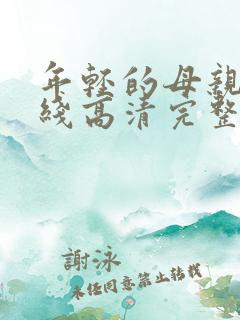 年輕的母親
綫高清完整
謝泳
未经同意禁止转载